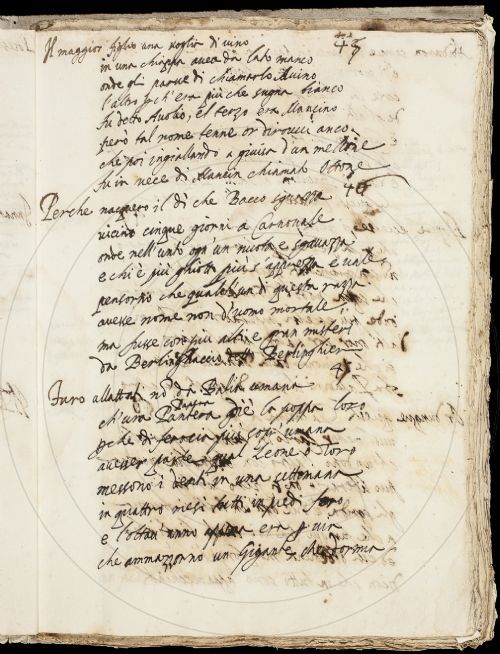 43
Il maggior figlio una voglia di vino
in una chiappa avea da lato manco
onde gli parve di chiamarlo Avino
l'altro ch'era più che sugna bianco
fu detto Avolio, e'l terzo era Mancino
però tal nome tenne
che poi ingiallando a guisa d'un mellone
fu in vece di Mancin chiamato Ottone
Perche nacquero il dì che Bacco
vicino cinque giorni a Carnovale
onde nell'unto ogn'un nuota e sguazza
e chi è più ghiotto più s'apprezza e vale
pensorno che qualch'un di questa razza
avesse nome non d'uomo mortale
ma fusse con più alti e gran misteri
da Berlingaccio detto Berlinghier
Furo allattati nò da Balia umana
ch'una Pantera diè la poppa loro
che di ferocia più che umana
qual Leone o Toro
messono i denti in una settimana
in quattro mesi tutti in piedi foro
e l'ottav'anno era
che ammazzorno un Gigante che dormia